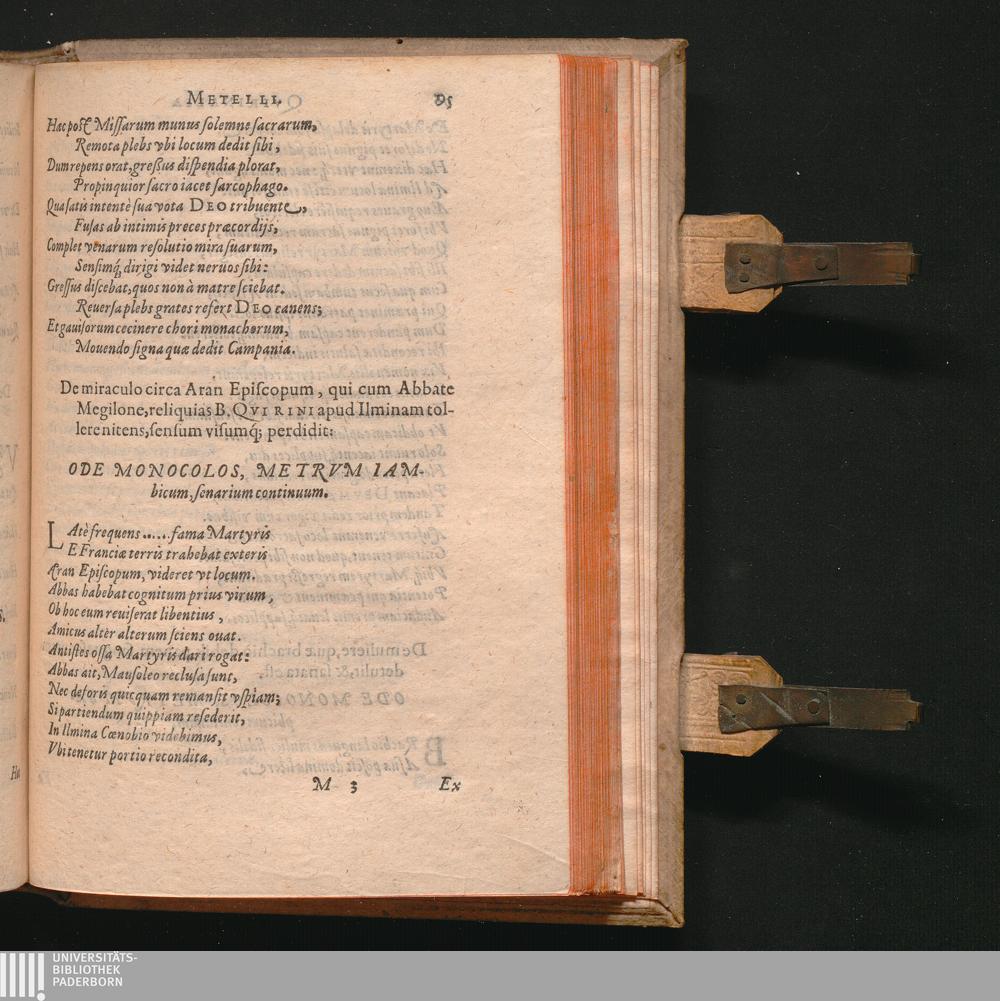 METELLI. 95
Hac post Missarum munus solemne sacrarum,
Remota plebs vbi locum dedit sibi,
Dum repens orat, gressus dispendia plorat,
Propinquior sacro iacet sarcophago.
Qua satis intentè sua vota DEO tribuente,
Fusas ab intimis preces præcordijs,
Complet venarum resolutio mira suarum,
Sensimq́, dirigi videt neruos sibi:
Gressus discebat, quos non à matre sciebat.
Reuersa plebs grates refert DEO canens;
Et gauisorum cecinere chori monachorum,
Mouendo signa quæ dedit Campania.
De miraculo circa Aran Episcopum, qui cum Abbate
Megilone, reliquias B. QVIRINI apud Ilminam tol-
lere nitens, sensum visumq́; perdidit:
ODE MONOCOLOS, METRVM IAM-
bicum, senarium continuum.
LAtè frequens ..... fama Martyris
E Franciæ terris trahebat exteris
Æran Episcopum, videret vt locum.
Abbas habebat cognitum prius virum,
Ob hoc eum reuiserat libentius,
Amicus altèr alterum sciens ouat.
Antistes ossa Martyris dari rogat:
Abbas ait, Mausoleo reclusa sunt,
Nec deforis quicquam remansit vspiam;
Si partiendum quippiam resederit,
In Ilmina Cœnobio videbimus,
Vbi tenetur portio recondita,
M 3 Ex
UNIVERSITÄTS-
BIBLIOTHEK
PADERBORN